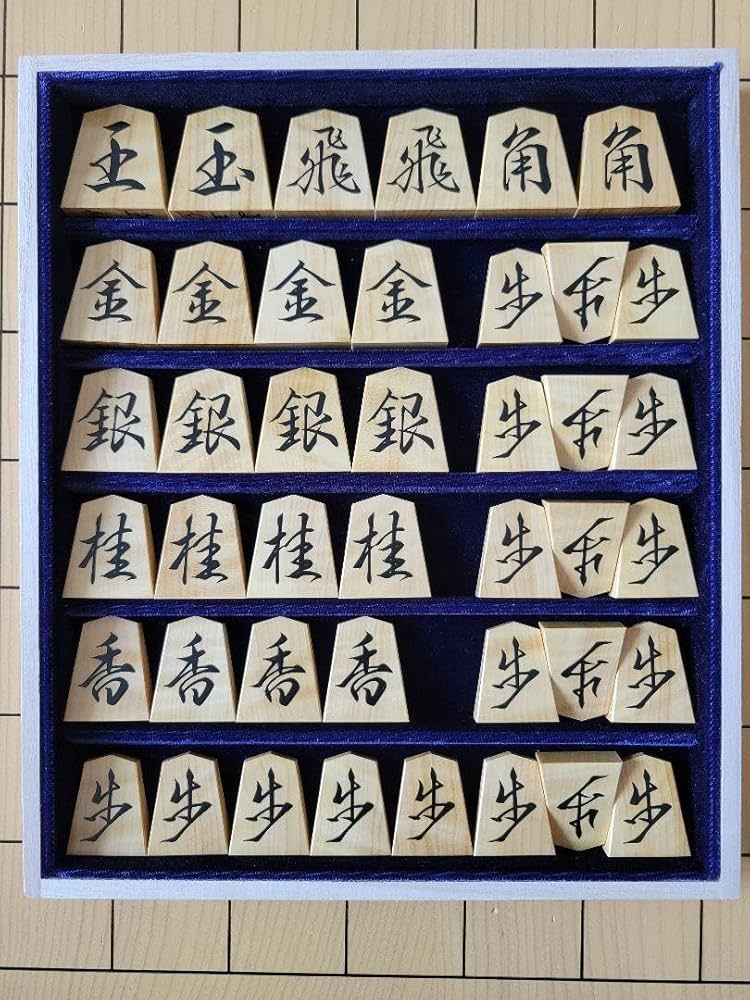 王 玉 飛 飛 角 角
金 金 金 金 歩 歩 歩
銀 銀 銀 銀 歩 歩 歩
桂 桂 桂 桂 歩 歩 歩
香 香 香 香 歩 歩 歩
歩 歩 歩 歩 歩 歩 歩 歩